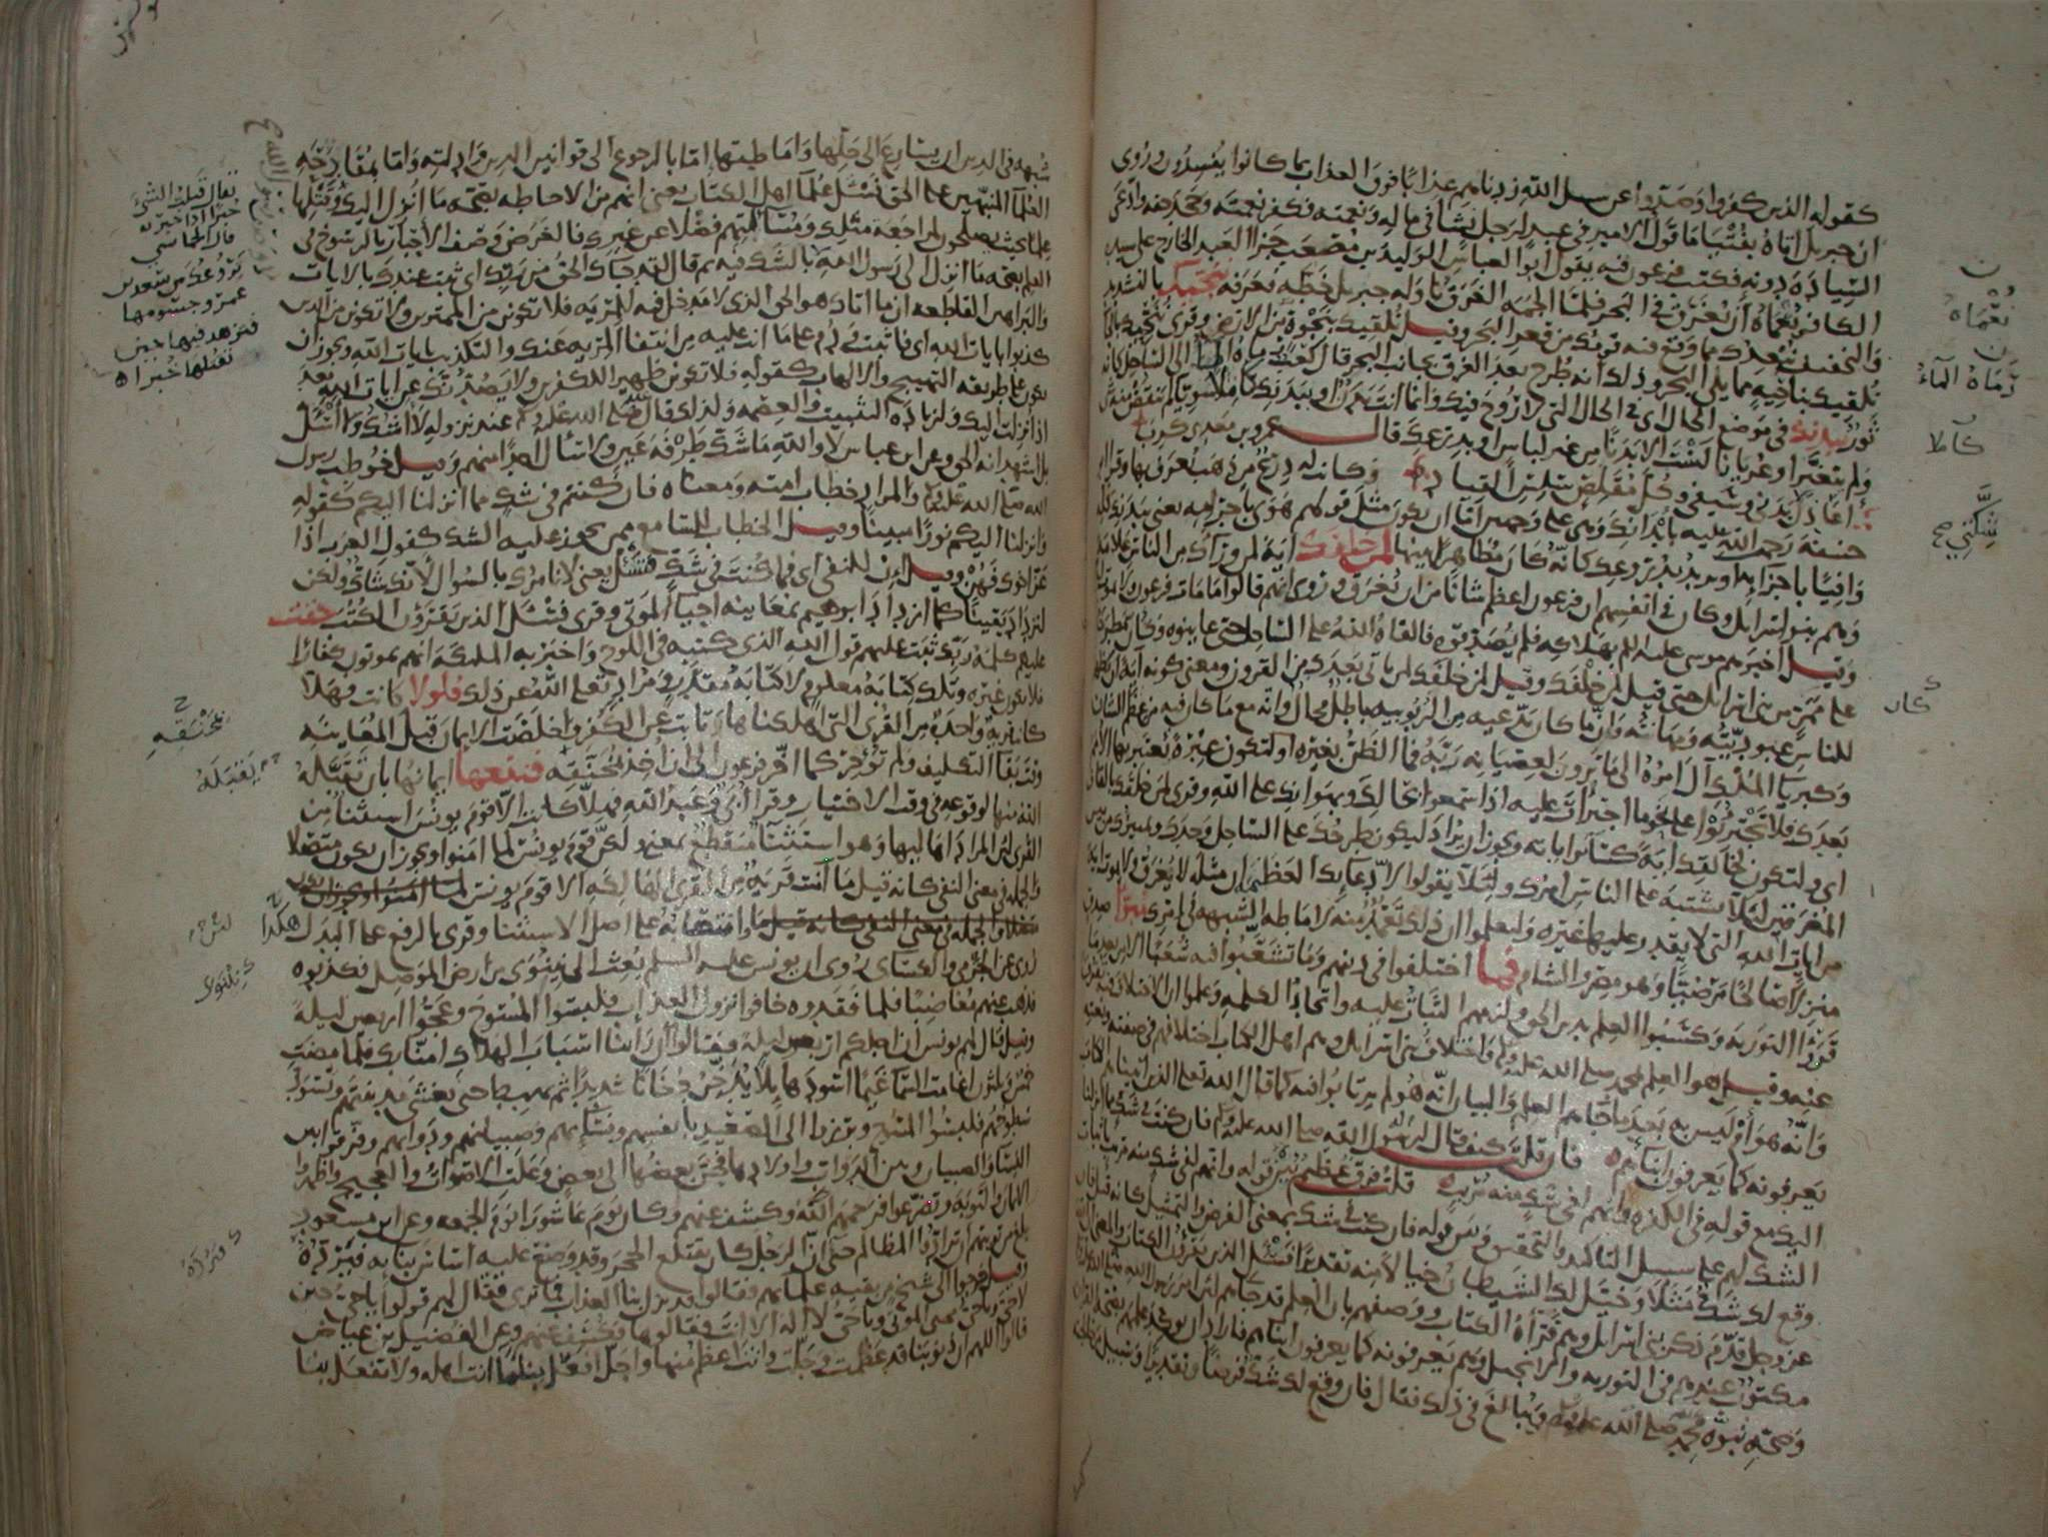 كقوله الذين كفروا وصدوا عن سبيل الله زدناهم عذابا فوق العذاب بما كانوا يفسدون وروى
ان جبريل اتاه بفتيا ما قول الامير في عبد لرجل نشأ في ماله ونعمته فكفر نعمته وجحد حقه وادعى
السيادة دونه فكتب فرعون فيه يقول ابوا العباس الوليد بن مصعب جزاا لعبد الخارج على سيده
الكافر نعماه أن يغرق في البحر فلما الجمه الغرق ناوله جبريل خطه فعرفه ننجيك بالتشديد
والتخفيف نبعدك مما وقع فيه قومك من قعر البحر وقيل نلقيك بنجوة من الارض وقرى ننحيك بالحا
نلقيك بناحية مما يلي البحر وذلك انه طرح بعد الغرق بجانب البحر قال كعب رماه الما الى الساحل كانه
ثور ببدنك في موضع الحال اى في الحال التي لا روح فيك وانما انت بدن او ببدنك كاملا سويا لم ينقص منه شى
ولم يتغير او عريانا لست الا بدنا من غير لباس او بدرعك قال عمرو بن معدى كرب
اعاذل بدني وسيفي وكل مقلص سلس القياد وكانت له درع من ذهب يعرف بها وقرا ابو
حنيفة رحمه الله عليه بابدانك وهى على وجهين اما ان يكون مثل قولهم هوى باجرامه يعنى ببدنك كله
وافيا باجزائه او يريد بدروعك كانه كان مظاهرا بينها لمن خلفك آية لمن وراك من الناس علامة
وهم بنو اسرايل وكان في انفسهم ان فرعون اعظم شانا من ان يغرق وروى انهم قالوا ما مات فرعون ولا يموت
وقيل اخبرهم موسى عليه السلم بهلاكه فلم يصدقوه فالقاه الله على الساحل حتى عاينوه وكان مطرحه
على ممر من بنى اسرايل حتى قيل لمن خلفك وقيل لمن خلفك لمن ياتى بعدك من القرون ومعنى كونه آية ان يظهر
للناس عبوديته ومهانته وان ما كان يدعيه من الربوبيه باطل محال وانه مع ما كان فيه من عظم الشان
وكبريا الملك آل امره الى ما ترون لعصيانه ربه فما الظن بغيره او لتكون عبرة يعتبر بها الامم
بعدك فلا يجترئوا على نحو ما اجترأت عليه اذا سمعوا بحالك وبهوانك على الله وقرى لمن خلقك بالقاف
اى ولتكون لخالقك اية كسائر اياته ويجوز ان يراد ليكون طرحك على الساحل وحدك وتمييزك من بين
المغرقين لئلا يشتبه على الناس امرك ولئلا يقولوا لادعايك العظمة ان مثله لا يغرق ولا يموت اية
من ايات الله التى لا يقدر عليها غيره وليعلموا ان ذلك تعمد منه لاماطه الشبهه فى امرك مبوأ صدق
منزلا صالحا مرضيا وهو مصر والشام فما اختلفوا فى دينهم وما تشعبوا فيه شعبا الا من بعد ما
قروا التورية وكسبوا العلم بدين الحق ولزمهم الثبات عليه واتحاد الكلمة وعلموا ان الاختلاف فيه تفرق
عنه وقيل هو العلم بمحمد صلى الله عليه وسلم واختلاف بنى اسرايل وهم اهل الكتاب اختلافهم في صفته ونعته
وانه هو أم ليس به بعد ما جاهم العلم والبيان انه هو لم يرتابوا فيه كما قال الله تعلى الذين اتيناهم الكتاب
يعرفونه كما يعرفون ابناءهم فان قلت كيف قال لرسوله صلى الله عليه وسلم فان كنت في شك مما انزلنا
اليك مع قوله في الكفرة وانهم لفى شك منه مريب قلت فرق عظيم بين قوله وانهم لفى شك منه مريب باثبات
الشك لهم على سبيل التاكيد والتحقيق وبين قوله فان كنت فى شك بمعنى الفرض والتمثيل كانه قيل فان
وقع لك شك مثلا وخيل لك الشيطان خيالا منه تقديرا فسئل الذين يقرؤن الكتاب والمعنى ان الله
عز وجل قدم ذكر بنى اسرايل وهم قرأة الكتاب ووصفهم بان العلم قد جاهم لان امر رسول الله صلى الله عليه
مكتوب عندهم فى التورية والانجيل وهم يعرفونه كما يعرفون ابناهم فاراد ان يوكد علمهم بصحة القران
وصحة نبوة محمد صلى الله عليه وسلم ويبالغ فى ذلك فقال فان وقع لك شك فرضا وتقديرا وسبيل من خالجته
نعماه
رماه الماء
كاملا
شكتي صح
كان
شبهه فى الدين ان يسارع الى حلها واماطتها اما بالرجوع الى قوانين الدين وادلته واما بمقادحة
العلما المنبهين على الحق فسئل علما اهل الكتاب يعنى انهم من الاحاطه بصحه ما انزل اليك وقتلها
علما بحيث يصلحون لمراجعة مثلك ومسآءلتهم فضلا عن غيرك فالغرض وصف الأخبار بالرسوخ فى
العلم بصحه ما انزل الى رسول الله لا بالشك فيه ثم قال لقد جاك الحق من ربك اى ثبت عندك بالايات
والبراهين القاطعه ان ما اتاك هو الحق الذى لا مدخل فيه للمريه فلا تكونن من الممترين ولا تكونن من الذين
كذبوا بايات الله اى فاثبت ودم على ما انت عليه من انتفا المريه عنك والتكذيب بايات الله ويجوز ان
يكون على طريقه التهييج والالهاب كقوله فلا تكونن ظهيرا للكفرين ولا يصدنك عن ايات الله بعد
اذ انزلت اليك ولزيادة التثبيت والعصمه ولذلك قال صلى الله عليه وسلم عند نزوله لا اشك ولا اسئل
بل اشهد انه الحق وعن ابن عباس لا والله ما شك طرفة عين ولا سال احدا منهم وقيل خوطب رسول
الله صلى الله عليه وسلم والمراد خطاب امته ومعناه فان كنتم فى شك مما انزلنا اليكم كقوله
وانزلنا اليكم نورا مبينا وقيل الخطاب للسامع ممن يجوز عليه الشك كقول العرب اذا
عز اخوك فهن وقيل ان للنفى اى فما كنت فى شك فسئل يعنى لا نامرك بالسوال لانك شاك ولكن
لتزداد يقينا كما ازداد ابرهيم بمعاينه احيآ الموتى وقرى فسئل الذين يقرؤن الكتب حقت
عليهم كلمة ربك ثبت عليهم قول الله الذى كتبه فى اللوح واخبر به الملئكة انهم يموتون كفارا
فلا يكون غيره وتلك كتابة معلوم لا كتابة مقدر ومراد تعلى الله عن ذلك فلولا كانت فهلا
كانت قرية واحدة من القرى التى اهلكناها تابت عن الكفر واخلصت الايمان قبل المعاينه
وقت بقآ التكليف ولم تؤخر كما اخر فرعون الى ان اخذ بمخنقه فنفعها ايمانها بان تقبله
الله منها لوقوعه فى وقت الاختيار وقرا ابى وعبد الله فهلا كانت الا قوم يونس استثنا من
القرى لان المراد اهاليها وهو استثنآ منقطع بمعنى ولكن قوم يونس لما امنوا ويجوز ان يكون متصلا
والجمله فى معنى النفى كانه قيل ما آمنت قرية من القرى الهالكه الا قوم يونس
وانتصابه على اصل الاستثنا وقرى بالرفع على البدل هكذا
روى عن الجرمى والكساى روى ان يونس عليه السلم بعث الى نينوى من ارض الموصل فكذبوه
فذهب عنهم مغاضبا فلما فقدوه خافوا نزول العذاب فلبسوا المسوح وعجوا اربعين ليلة
وقيل قال لهم يونس ان اجلكم اربعون ليلة فقالوا ان راينا اسباب الهلاك امنا بك فلما مضت
خمس وثلثون اغامت السما غيما اسود هايلا يدخن دخانا شديدا ثم يهبط حتى يغشى مدينتهم ويسود
سطوحهم فلبسوا المسوح وبرزوا الى الصعيد بانفسهم ونسآئهم وصبيانهم ودوابهم وفرقوا بين
النسا والصبيان وبين الدواب واولادها فحن بعضها الى بعض وعلت الاصوات والعجيج واظهروا
الايمان والتوبة وتضرعوا فرحمهم الله وكشف عنهم وكان يوم عاشورا يوم الجمعه وعن ابن مسعود
بلغ من توبتهم ان ترادوا المظالم حتى ان الرجل كان يقتلع الحجر وقد وضع عليه اساس بنايه فيرده
وقيل خرجوا الى شيخ من بقيه علمائهم فقالوا قد نزل بنا العذاب فما ترى فقال لهم قولوا ياحى حين
لا حى وياحى محيى الموتى وياحى لا اله الا انت فقالوها فكشف عنهم وعن الفضيل بن عياض
قالوا اللهم ان ذنوبنا قد عظمت وجلت وانت اعظم منها واجل افعل بنا ما انت اهله ولا تفعل بنا
يقال قتلت الشئ
خبرا اذا خبرته
قال الحماسى
عمرو جشومها
فيزهد فيها حين
نقتلها خبرا
بمخنقه
يقبله
نينوى
فيرده